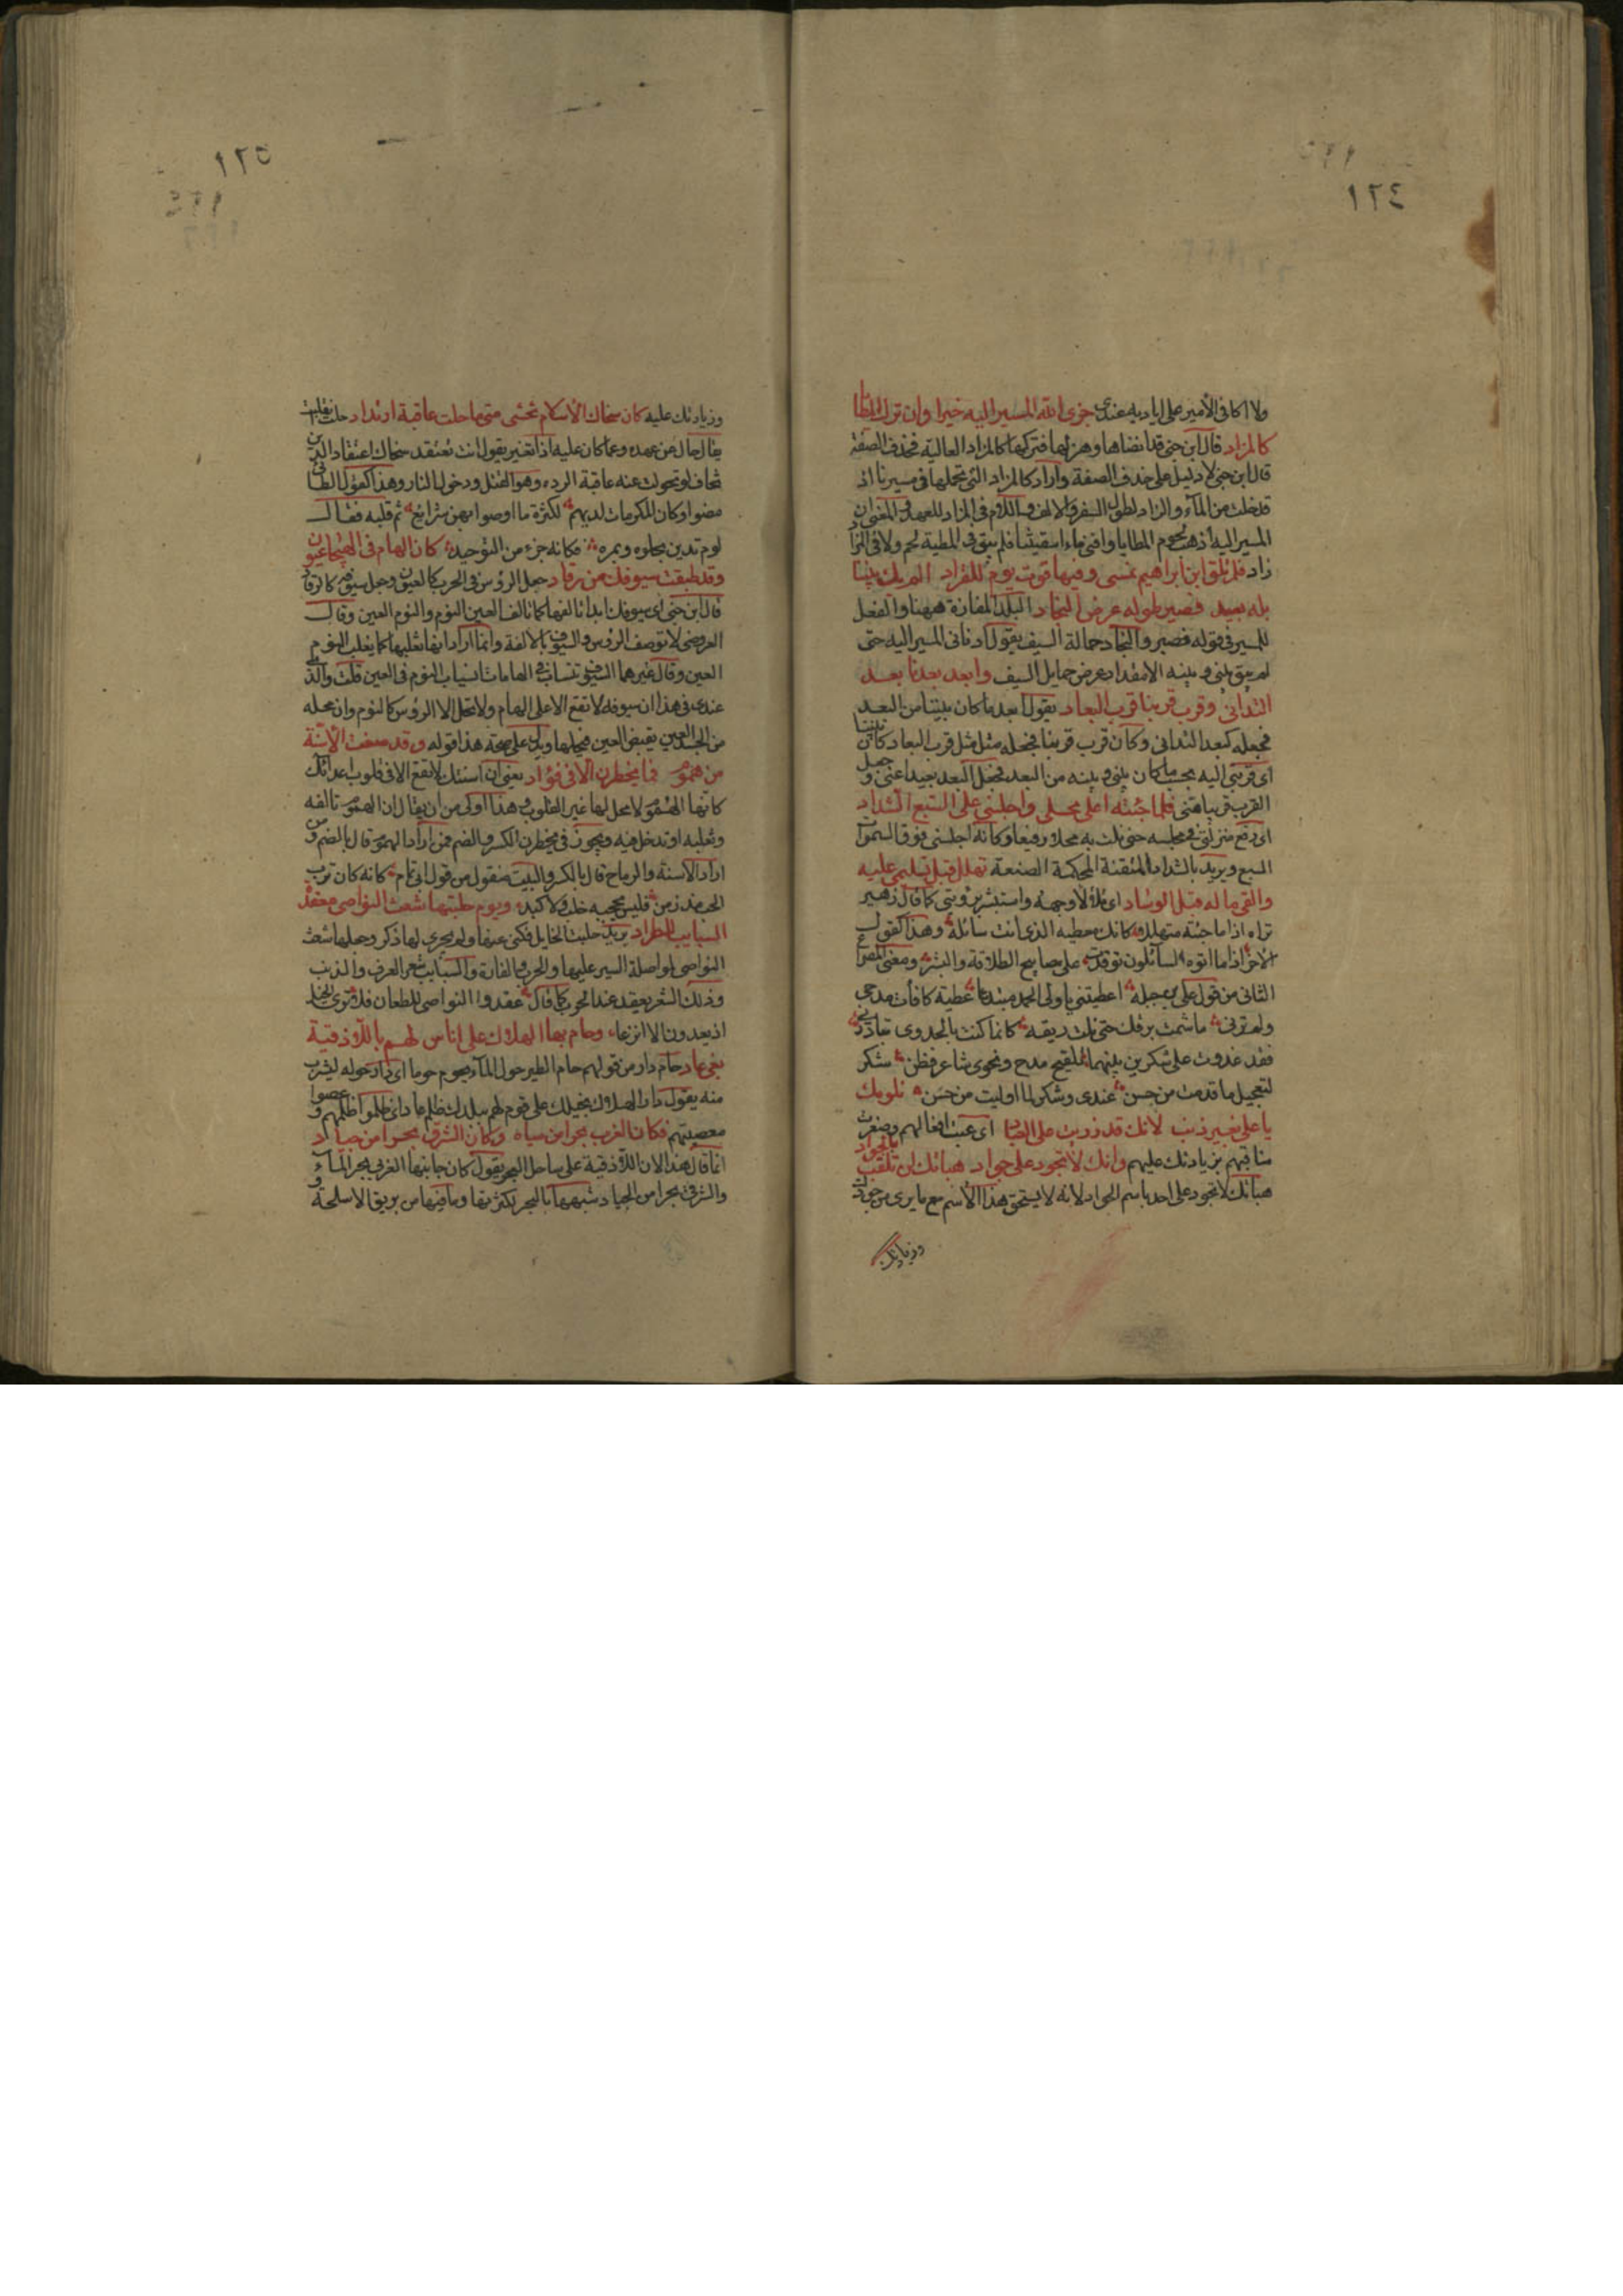 ١٢٤
ولا اكافى الأمير على اياديه عندى جزى الله المسير اليه خيرا وان ترك المطايا
كالمزاد قال ابن جنى قد انضاها وهزلها فتركها كالمزاد البالية فحذف الصفة
قال ابن جنى لا دليل على حذف الصفة واراد كالمزاد التى تحملها فى مسيرنا اذ
قد خلت من الماء والزاد لطول السفر والالف واللام فى المزاد للعهد والمعنى ان
المسير اليه اذهب لحوم المطايا وافنى ماء اسقيتنا فلم يبق فى المطية لحم ولا فى المزاد
زاد فلم تلق ابن ابراهيم عنسى وفيها قوت يوم للقراد الم يك بيننا
بلد بعيد فصير طوله عرض النجاد البلد المفازة ههنا والفعل
للمسير فى قوله فصير والنجاد حمالة السيف يقول ادنانى المسير اليه حتى
لم يبق بينى وبينه الا مقدار عرض حمايل السيف وابعد بعدنا بعد
التدانى وقرب قربنا قرب البعاد يقول ابعد ما كان بيننا من البعد
فجعله كبعد التدانى وكان قرب قربنا فجعله مثل مثل قرب البعاد كان بيننا
اى قربنى اليه بحسب ما كان بينى وبينه من البعد فجعل البعد بعيدا عنى وجعل
القرب قريبا منى فلما جئته اعلى محلى واجلسنى على السبع الشداد
اى رفع منزلتى فى مجلسه حتى نلت به محلا رفيعا وكانه اجلسنى فوق السموات
السبع ويريد بالشداد المتقنة المحكمة الصنعة تهلل قبل تسليمى عليه
والقى ماله قبل الوساد اى تلألأ وجهه واستبشر برؤيتى كما قال زهير
تراه اذا ما جئته متهللا كانك معطيه الذى انت سائله وهذا كقول
الآخر اذا ما اتوه السائلون توقدت عليه مصابيح الطلاقة والبشر ومعنى المصراع
الثانى من قول على بن جبلة اعطيتنى يا ولى الحمد مبتديا عطية كافأت مدحى
ولم ترنى ما شمت برقك حتى نلت ريقه كانما كنت بالجدوى تبادرنى
فقد غدوت على شكرين بينهما تلقيح مدح ونجوى شاعر فطن شكر
لتعجيل ما قدمت من حسن عندى وشكر لما اوليت من حسن نلومك
يا على بغير ذنب لانك قد زريت على العباد اى عبت افعالهم وصغرت
مناقبهم بزيادتك عليهم وانك لا تجود على جواد هباتك ان تلقب بالجواد
هباتك لا تجود على احد باسم الجواد لانه لا يستحق هذا الأسم مع ما يرى من جودك
وزيادتك
١٢٥
وزيادتك عليه كان سخاك الأسلام تخشى متى ما حلت عاقبة ارتداد حلت انقلبت
يقال حال عن عهده وعما كان عليه اذا تغير يقول انت تعتقد سخاك اعتقاد الدين
تخاف لو تحولت عنه عاقبة الردة وهو القتل ودخول النار وهذا كقول الطائى
مضوا وكان المكرمات لديهم لكثرة ما اوصوا بهن شرائع ثم قلبه فقال
لوم تدين بحلوه وبمره فكانه جزء من التوحيد كان الهام فى الهيجا عيون
وقد طبعت سيوفك من رقاد جعل الرؤس فى الحرب كالعيون وجعل سيوفه كالرقاد
قال ابن جنى اى سيوفك ابدا تالفها كما تالف العين النوم والنوم العين وقال
العروضى لا توصف الرؤس والسيوف بالالفة وانما اراد انها تغلبها كما يغلب النوم
العين وقال غيرهما السيوف تنساب فى الهامات انسياب النوم فى العين قلت والذى
عندى فى هذا ان سيوفه لا تقع الا على الهام ولا تحل الا الرؤس كالنوم وان محله
من الجسد العين يقبض العين فيحلها ويدل على صحة هذا قوله وقد صغت الأسنة
من هموم فما يخطرن الا فى فؤاد يعنى ان اسنتك لا تقع الا فى قلوب اعدائك
كانها الهموم لا محل لها غير القلوب وهذا اولى من ان يقال ان الهموم تالفه
وتغلبه او تدخل فيه ويجوز فى يخطرن الكسر والضم فمن اراد الهموم قال بالضم ومن
اراد الأسنة والرماح قال بالكسر والبيت منقول من قول ابى تمام كانه كان ترب
الحب مذ زمن فليس يحجبه خلب ولا كبد ويوم جلبتها شعث النواصى معقدة
السبايب للطراد يريد جلبت الخايل فكنى عنها ولم يجرى لها ذكر وجعلها شعث
النواصى لمواصلة السير عليها والحرب والغارة والسبايب شعر العرف والذنب
وذلك الشعر يعقد عند الحرب كما قال عقدوا النواصى للطعان فلا ترى الخيل
اذ يعدون الا انزعا وحام بها الهلاك على اناس لهم باللاذقية
بغى عاد حام دار من قولهم حام الطير حول الماء يحوم حوما اى دار حوله ليشرب
منه يقول دار الهلاك بخيلك على قوم لهم ببلدك ظلم عاد اى ظلموا ظلمهم وعصوا
معصيتهم فكان الغرب بحرا من مياه وكان الشرق بحرا من جياد
انما قال هذا لان اللاذقية على ساحل البحر يقول كان جانبها الغربى بحر الماء و
والشرقى بحرا من الجياد شبهها بالبحر لكثرتها وما فيها من بريق الاسلحة